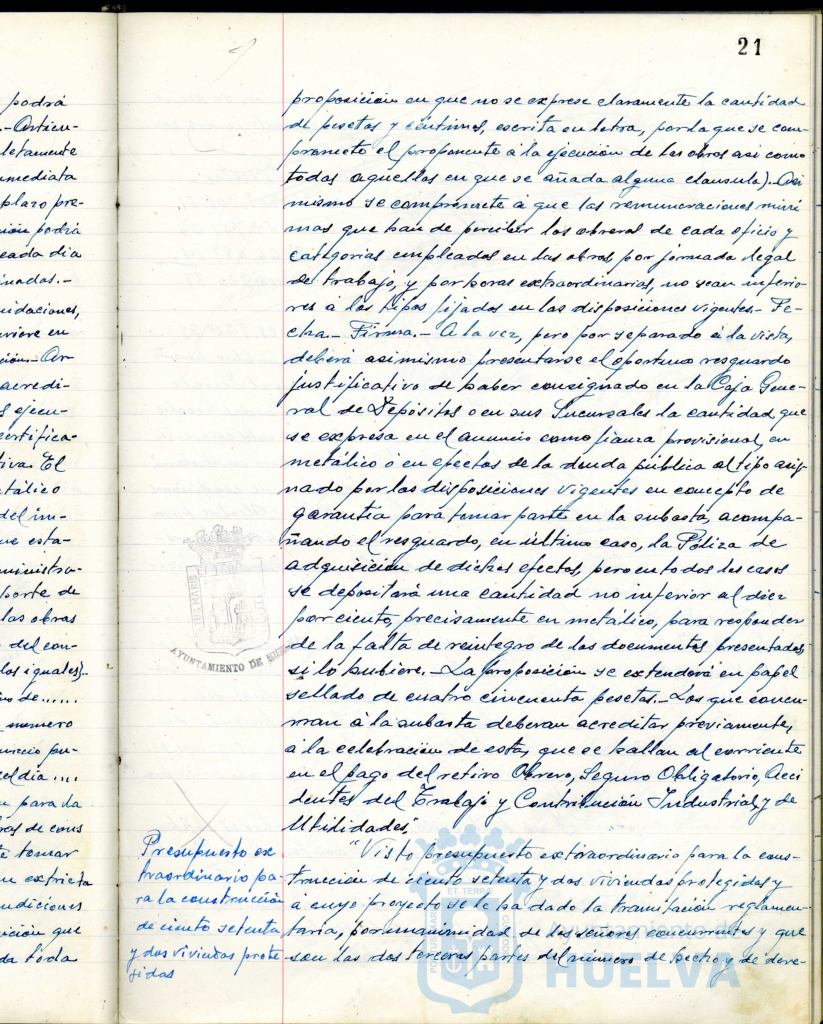 21
podrá
.-Artícu-
letamente
nmediata
plazo pre-
ción podrá
cada dia
inadas.-
uidaciones,
uviere en
ción.- Ar-
acredi-
s ejecu-
certifica-
tiva. El
etálico
del im-
ue esta-
ministra-
porte de
las obras
del con-
los iguales).
no de......
numero
uncio pu-
el dia ....
para la
ras de cons
te tomar
n extricta
ndiciones
ición que
de toda
proposición en que no se exprese claramente la cantidad
de pesetas y céntimos, escrita en letra, por la que se com-
promete el proponente á la ejecución de las obras asi como
todas aquellas en que se añada alguna clausula).- Asi
mismo se compromete á que las remuneraciones mini
mas que han de percibir los obreros de cada oficio y
categorias empleados en las obras, por jornada legal
de trabajo, y por horas extraordinarias, no sean inferio
res á los tipos fijados en las disposiciones vigentes.- Fe-
cha.- Firma.- A la vez, pero por separado á la vista,
deberá asimismo presentarse el oportuno resguardo
justificativo de haber consignado en la Caja Gene-
ral de Depósitos o en sus Sucursales la cantidad que
se expresa en el anuncio como fianza provisional, en
metálico ó en efectos de la deuda pública al tipo asig-
nado por las disposiciones vigentes en concepto de
garantia para tomar parte en la subasta, acompa-
ñando el resguardo, en último caso, la Póliza de
adquisición de dichos efectos, pero en todos los casos
se depositará una cantidad no inferior al diez
por ciento, precisamente en metálico, para responder
de la falta de reintegro de los documentos presentados,
si lo hubiere.- La proposición se extenderá en papel
sellado de cuatro cincuenta pesetas.- Los que concu-
rran á la subasta deberan acreditar previamente,
á la celebración de esta, que se hallan al corriente
en el pago del retiro Obrero, Seguro Obligatorio, Acci
dentes del Trabajo y Contribución Industrial y de
Utilidades".
Presupuesto ex
traordinario pa-
ra la construcción
de ciento setenta
y dos viviendas prote
gidas
"Visto presupuesto extraordinario para la cons-
trucción de ciento setenta y dos viviendas protegidas y
á cuyo proyecto se le ha dado la tramitación reglamen-
taria, por unanimidad de los señores concurrentes y que
son las dos terceras partes del número de hecho y de dere-
AYUNTAMIENTO DE
Ayuntamiento de
HUELVA